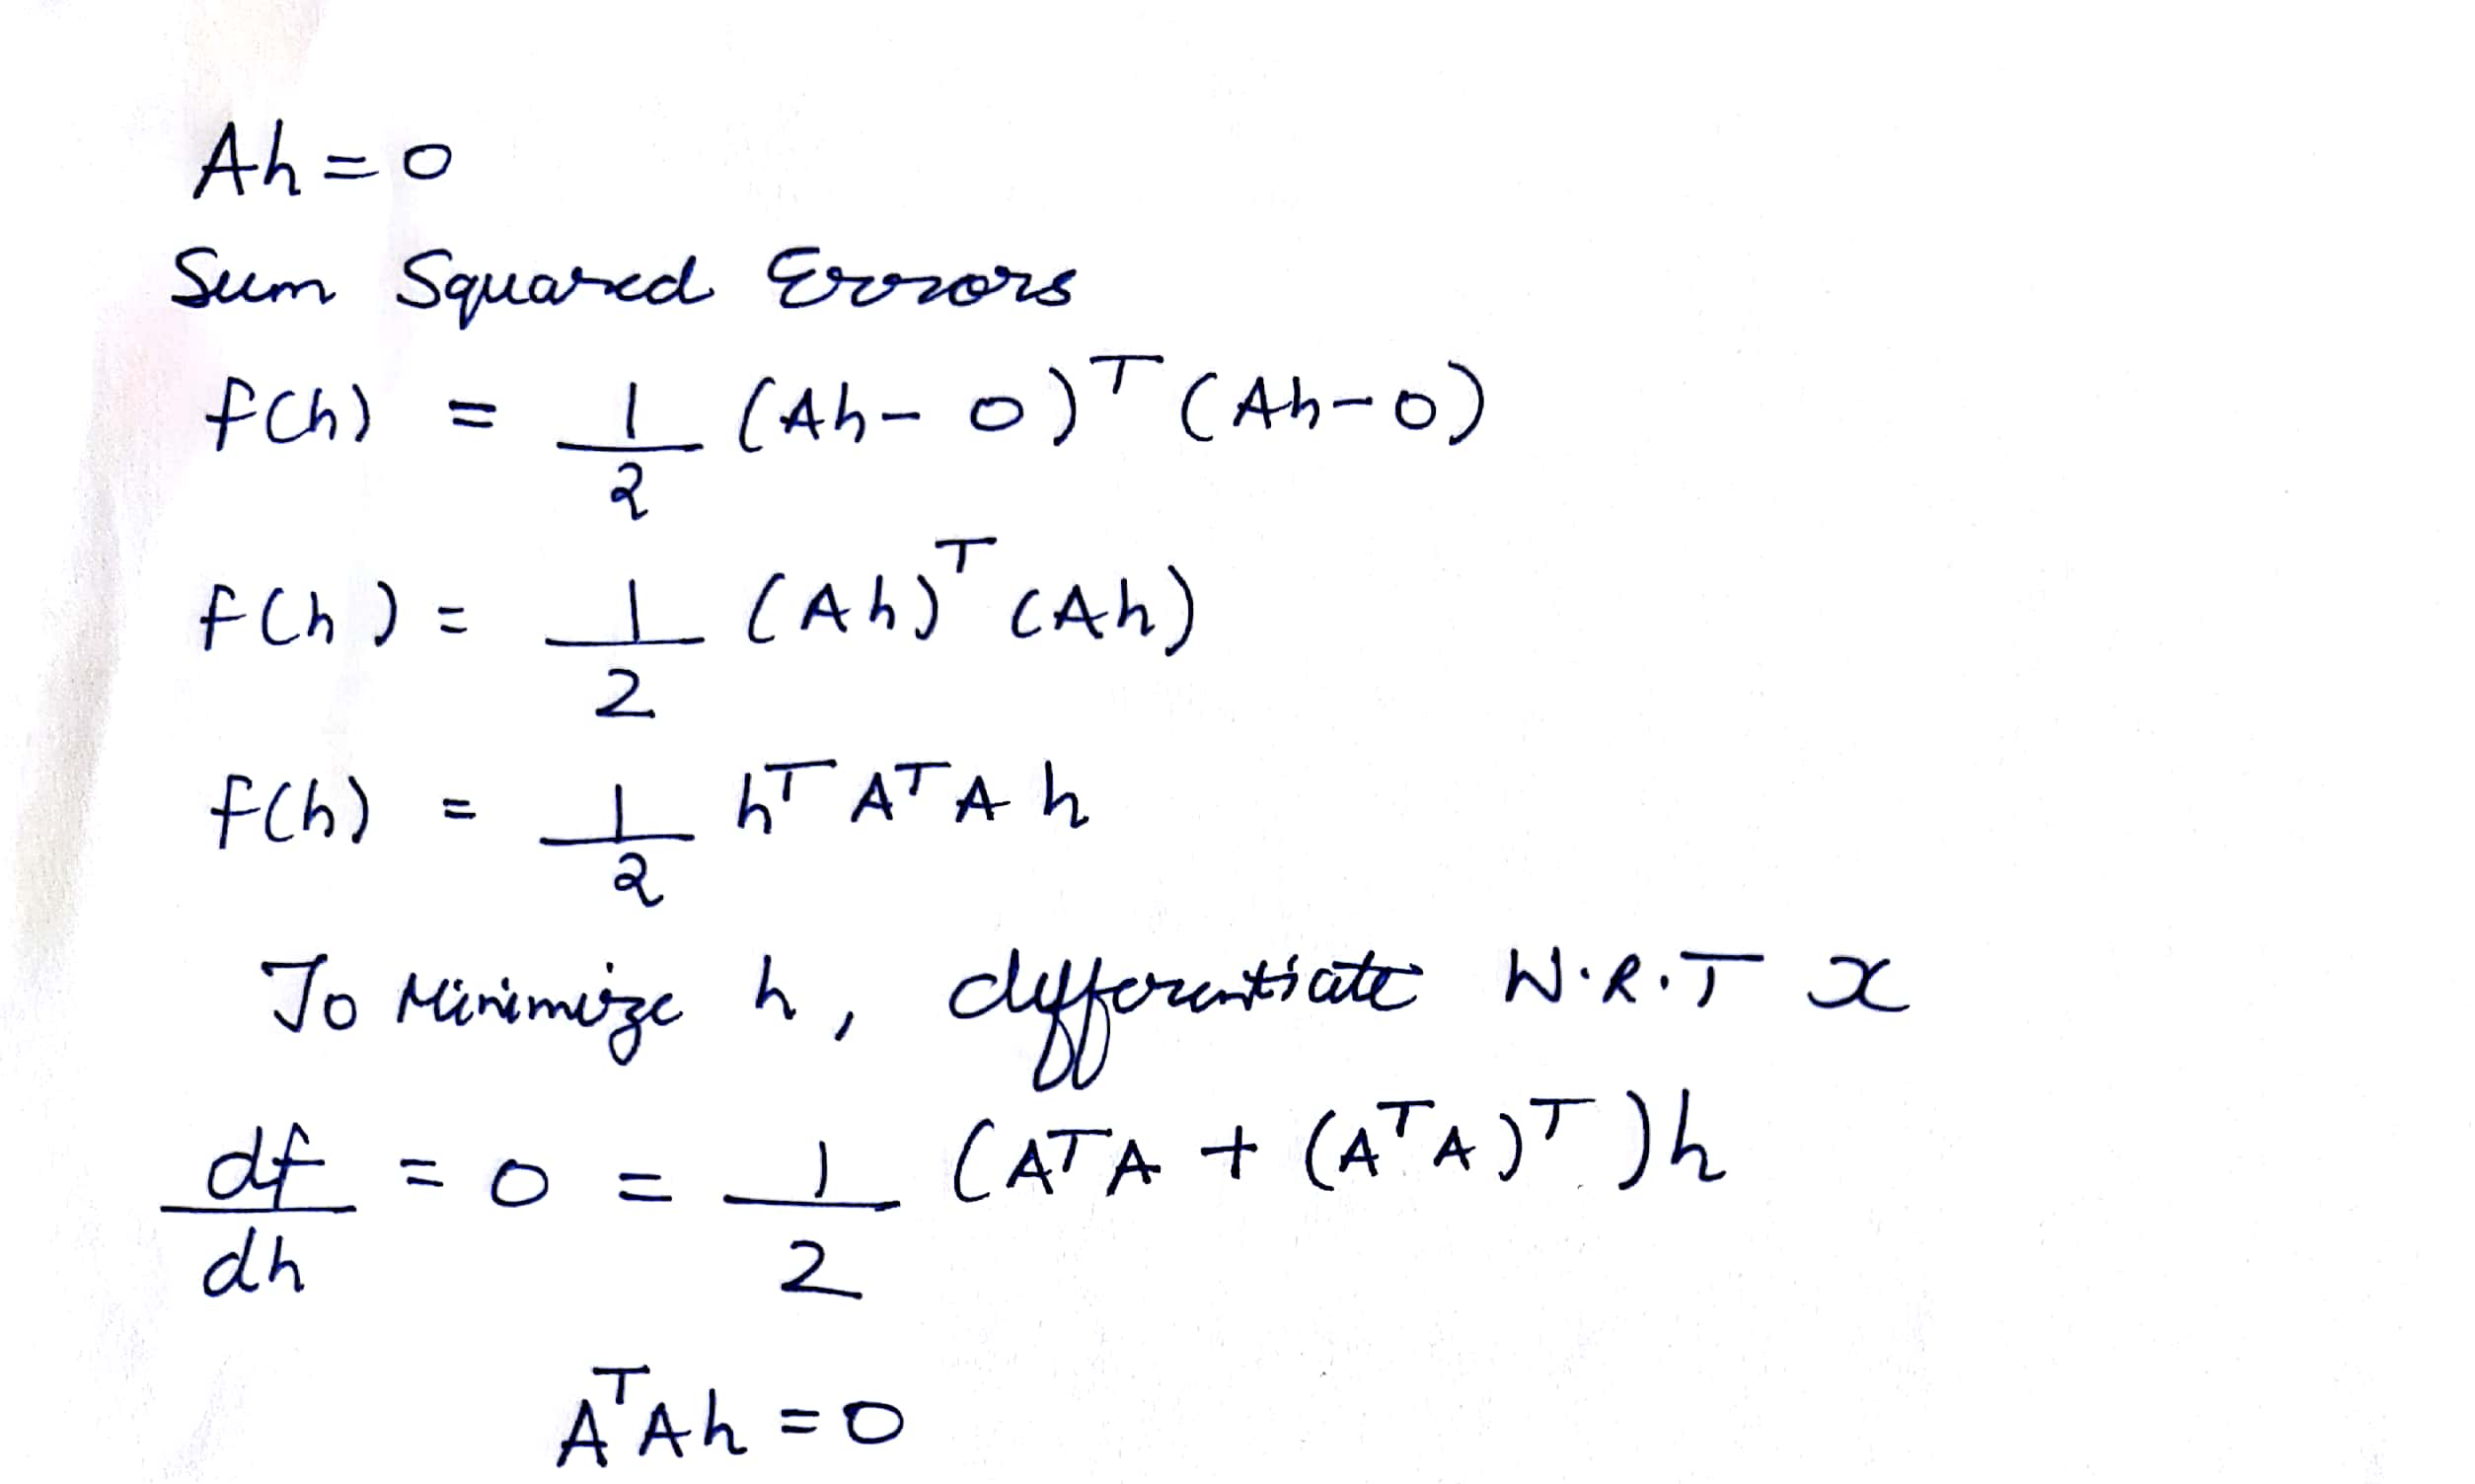 Ah = 0
Sum Squared Errors
f(h) = 1/2 (Ah - 0)^T (Ah - 0)
f(h) = 1/2 (Ah)^T (Ah)
f(h) = 1/2 h^T A^T A h
To Minimize h, differentiate W.R.T x
df/dh = 0 = 1/2 (A^T A + (A^T A)^T) h
A^T A h = 0